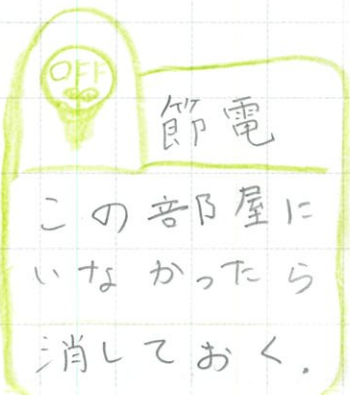 OFF
節電
この部屋に
いなかったら
消しておく.